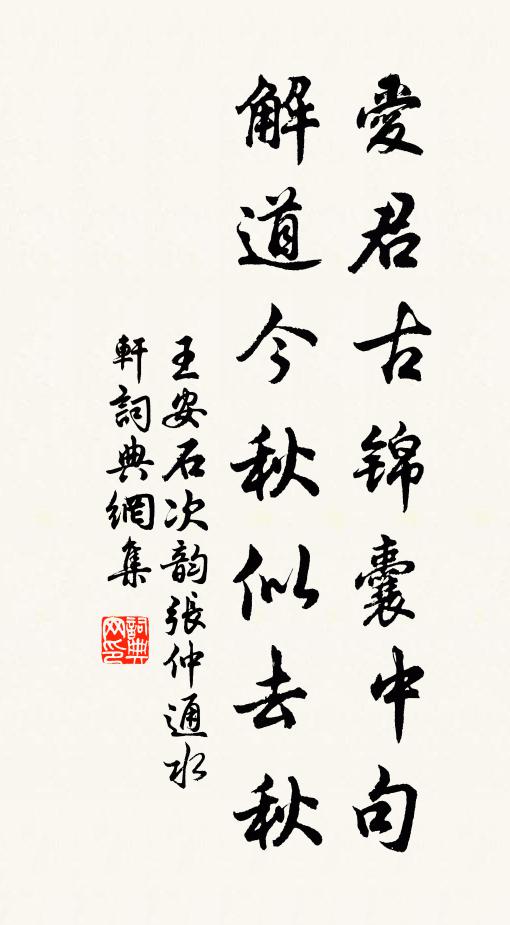 愛君古錦囊中句
解道今秋似去秋
王安石次韵張仲通水
軒詞典網集
詞典网印